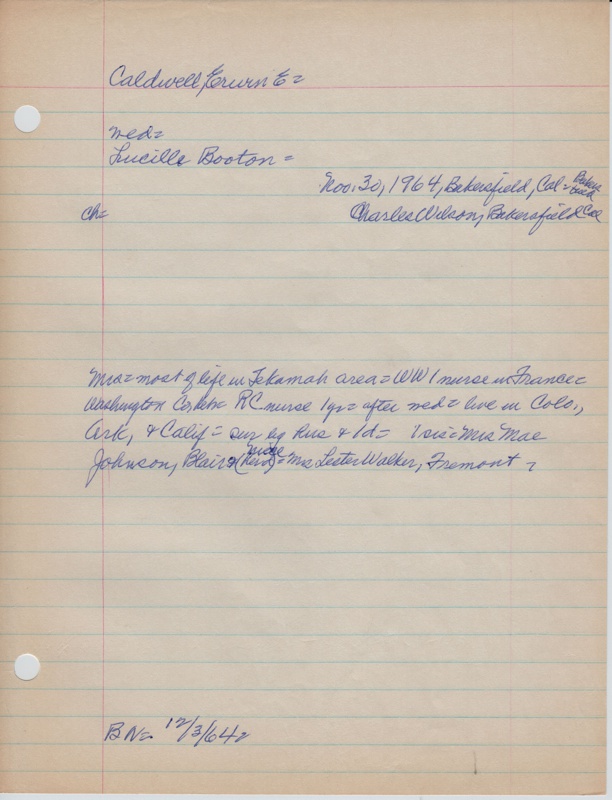 Caldwell, Erwin E=
med=
Lucille Booton =
Nov. 30, 1964, Bakersfield, Cal =
ch= Charles Wilson, Bakersfield Cal
Mrs= most of life in Tekamah area= WW1 nurse in France=
Washington RC nurse 1 yr= after med= live in Colo.,
Ark, & Calif= sur by Hus & 1d= 1 sis= Mrs Mae
niece
Johnson, Blair = Mrs Lester Walker, Fremont =
BN= 12/3/64=